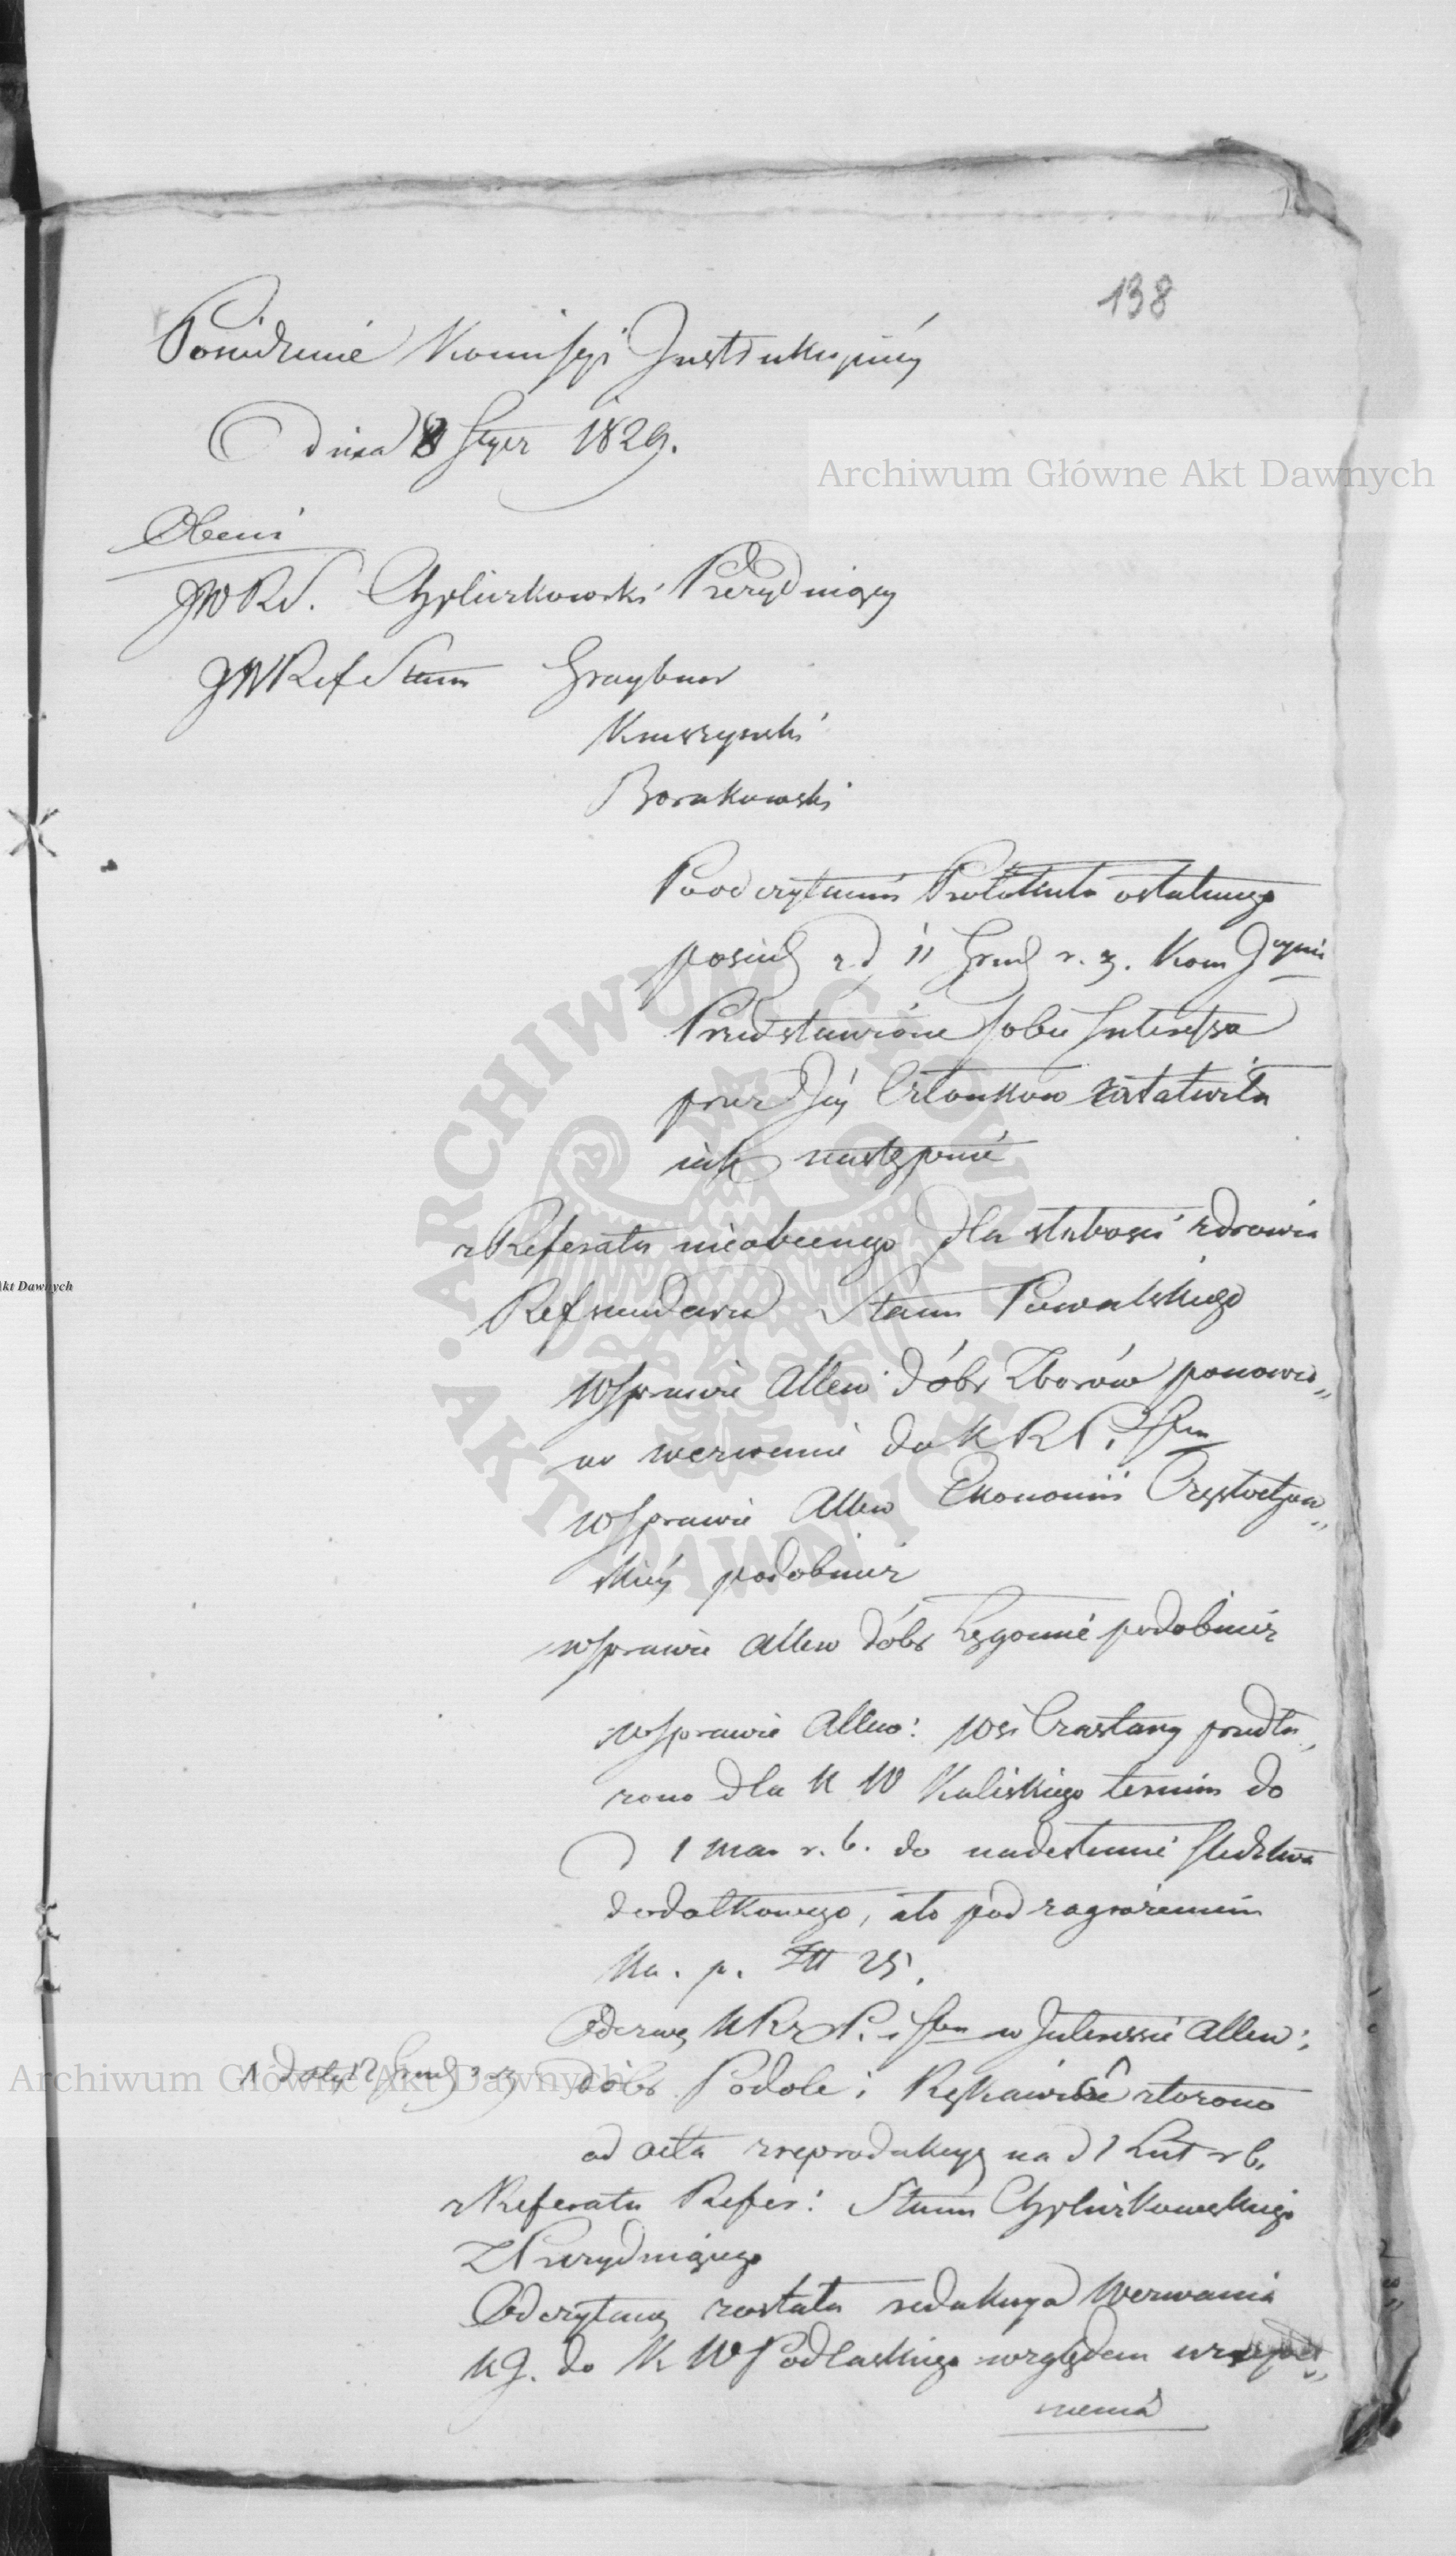 138
Posiedzenie Komissyi Instrukcyjnéy
dnia 8 Stycz 1829.
Obecni
JW RS. Chyliczkowski Prezyduiący
JW Ref Stanu Graybner
Kruszyński
Borakowski
Po odczytaniu Protokułu ostatniego
posiedz z d 11 Grud r. z. Kom Jcyina
Przedstawione sobie Interessa
przez Jéy Członków załatwiła
iak następuie
z Referatu nieobecnego dla słabości zdrowia
Referendarza Stanu Powalskiego
W sprawie Allew dóbr Zborów ponowio„
no wezwanie do K R P. i Sk
w sprawie Allew Ekonomii Częstochow„
skiéy podobnież
w sprawie Allew dóbr Łęgonie podobnież
w sprawie Allew: wsi Czastary przedłu„
żono dla K W Kaliskiego termin do
d 1 Mar r. b. do nadesłania śledztwa
dodatkowego, a to pod zagrożeniem
Ka. p. 25.
Odezwę K Rz P. i Sk w Interessie Allew:
z daty 12 Grud r z dóbr Podole i Rękawice złożono
ad acta z reprodukcyą na d 1 Lut r b.
z Referatu Refer: Stanu Chyliczkowskiego
Prezyduiącego
Odczytaną została redakcya wezwania
K J. do K W Podlaskiego względem
nienia
Archiwum Główne Akt Dawnych
Akt Dawnych
ARCHIWUM GŁÓWNE AKT DAWNYCH
Archiwum Główne Akt Dawnych